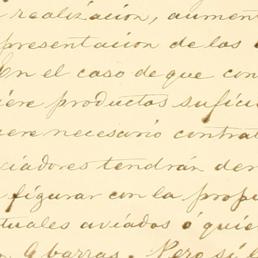 realización, aument
presentacion de las
En el caso de que con
iere productos sufici
uere necesario contrat
ciadores tendrán der
figurar con la prop
tuales aviados ó quie
barras. Pero si l